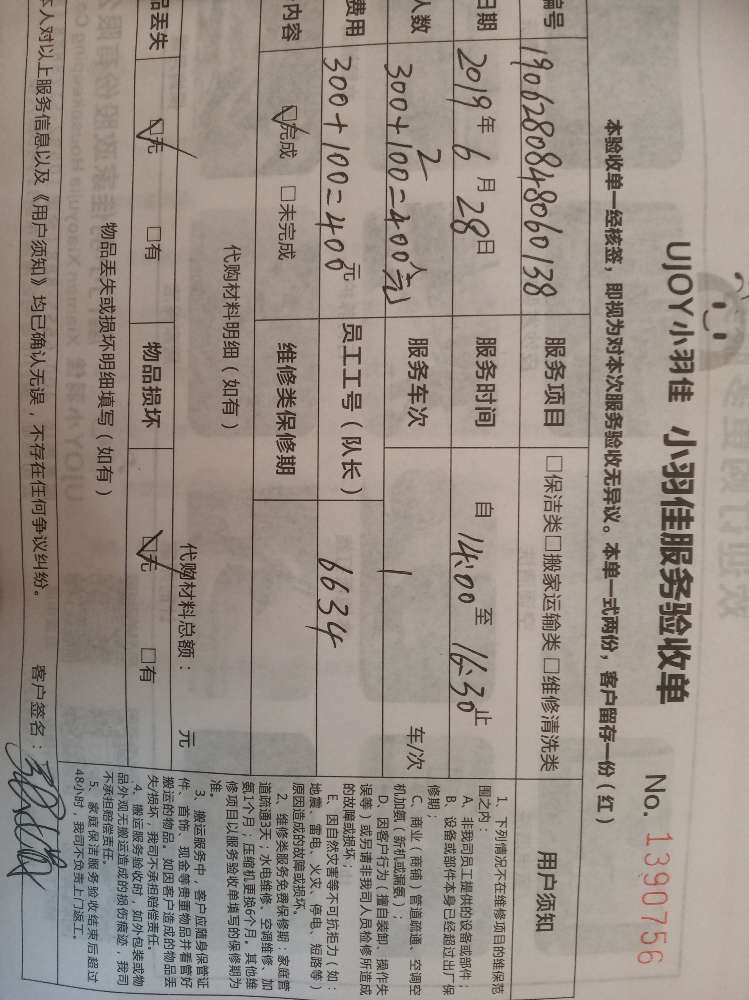 UJOY小羽佳 小羽佳服务验收单
No. 1390756
本验收单一经核签，即视为对本次服务验收无异议。本单一式两份，客户留存一份（红）
编号 1906280848060138 服务项目 □保洁类□搬家运输类 □维修清洗类
日期 2019年 6月 28日 服务时间 自 14:00 至 16:30 止
人数 2 人 300+100=400元 服务车次 1 车/次
费用 300+100=400 元 员工工号（队长） 6634
内容 ☑完成 □未完成 维修类保修期
代购材料明细（如有）
代购材料总额： 元
品丢失 ☑无 □有 物品损坏 ☑无 □有
物品丢失或损坏明细填写（如有）
本人对以上服务信息以及《用户须知》均已确认无误，不存在任何争议纠纷。 客户签名：
用户须知
1、下列情况不在维修项目的维保范
围之内：
A、非我司员工提供的设备或部件；
B、设备或部件本身已经超过出厂保
修期；
C、商业（商铺）管道疏通、空调空
机加氨（新机或漏氨）；
D、因客户行为（擅自装卸、操作失
误等）或另请非我司人员检修所造成
的故障或损坏；
E、因自然灾害等不可抗拒力（如：
地震、雷电、火灾、停电、短路等）
原因造成的故障或损坏。
2、维修类服务免费保修期：家庭管
道疏通3天；水电维修、空调维修、加
氨1个月；压缩机更换6个月。其他维
修项目以服务验收单填写的保修期为
准。
3、搬运服务中，客户应随身保管证
件、首饰、现金等贵重物品并看管好
搬运的物品，如因客户造成的物品丢
失/损坏，我司不承担赔偿责任。
4、搬运服务验收时，如外包装或物
品外观无搬运造成的损伤痕迹，我司
不承担赔偿责任。
5、家庭保洁服务验收结束后超过
48小时，我司不负责上门返工。